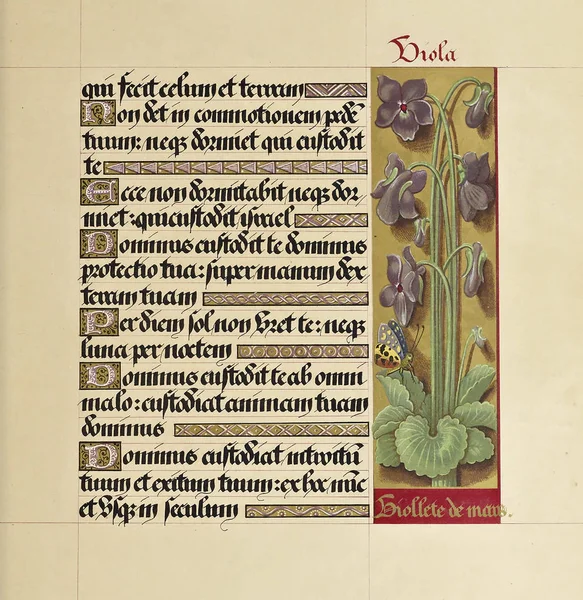 Viola
qui fecit celum et terram
Non det in commotionem pedē
tuum: neqȝ dormiet qui custodit
te
Ecce non dormitabit neqȝ dor
miet: qui custodit israel
Dominus custodit te dominus
protectio tua: super manum dex
teram tuam
Per diem sol non vret te: neqȝ
luna per noctem
Dominus custodit te ab omni
malo: custodiat animam tuam
dominus
Dominus custodiat introitū
tuum et exitum tuum: ex hoc nūc
et vsqȝ in seculum
Viollete de mars.